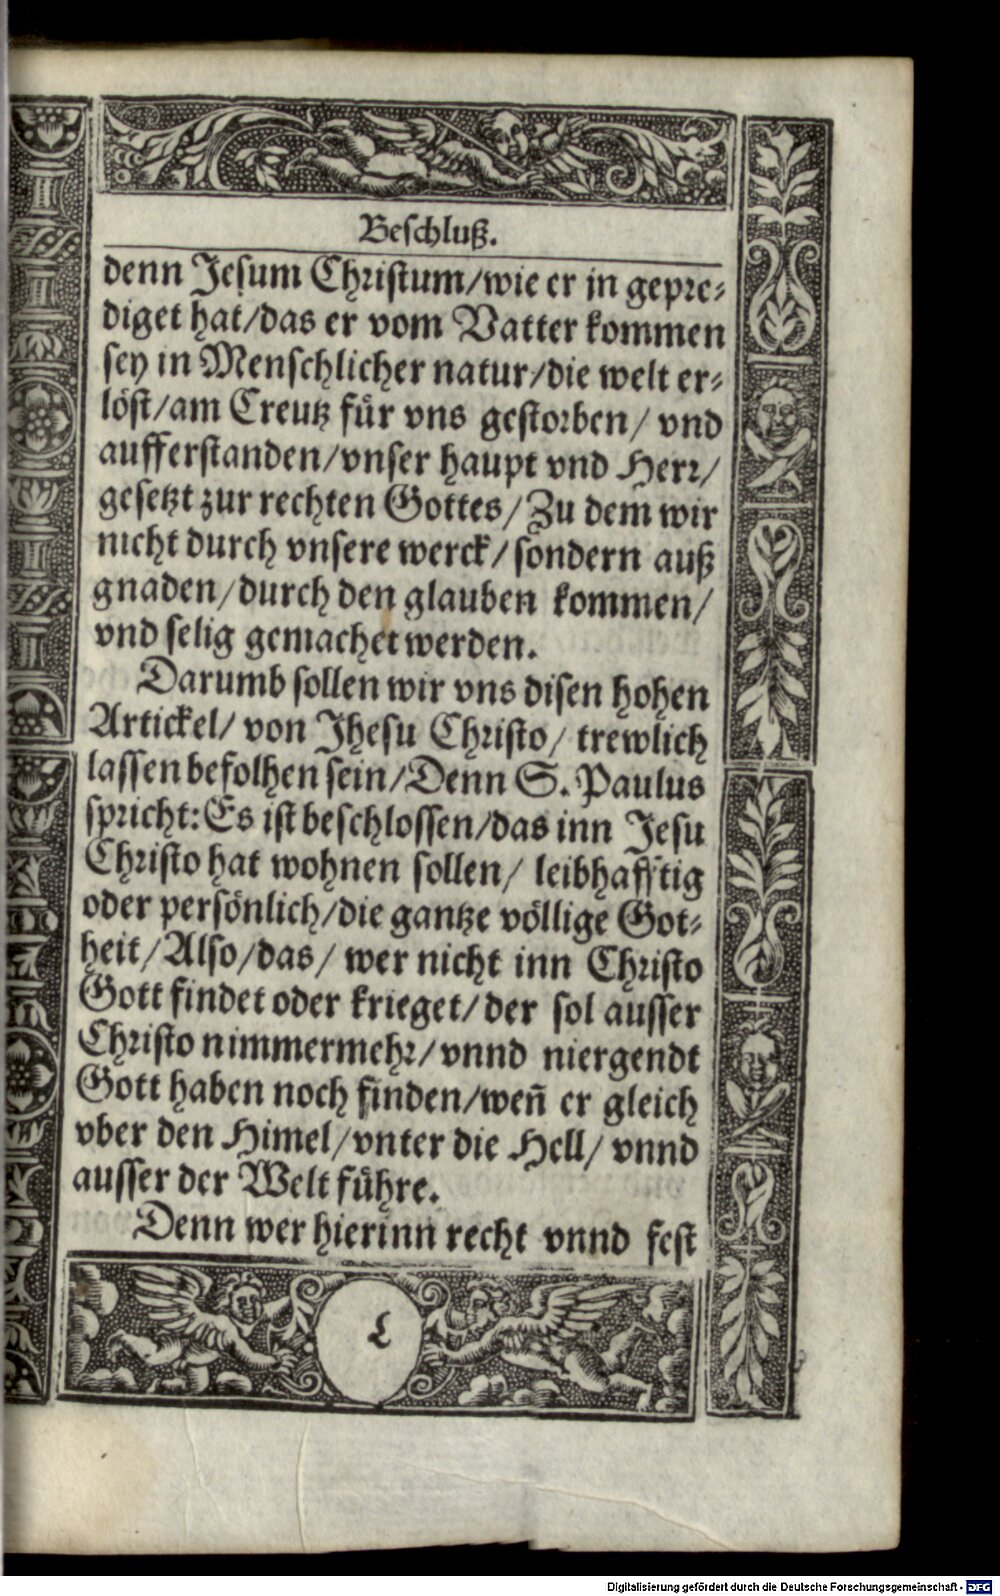 Beschluß.
denn Jesum Christum/wie er in gepre⸗
diget hat/das er vom Vatter kommen
sey in Menschlicher natur/die welt er⸗
löst/am Creutz für vns gestorben/ vnd
aufferstanden/vnser haupt vnd Herr/
gesetzt zur rechten Gottes/ Zu dem wir
nicht durch vnsere werck/ sondern auß
gnaden/durch den glauben kommen/
vnd selig gemachet werden.
Darumb sollen wir vns disen hohen
Artickel/ von Jhesu Christo/ trewlich
lassen befolhen sein/Denn S. Paulus
spricht: Es ist beschlossen/das inn Jesu
Christo hat wohnen sollen/ leibhafftig
oder persönlich/die gantze völlige Got⸗
heit/Also/das/ wer nicht inn Christo
Gott findet oder krieget/der sol ausser
Christo nimmermehr/vnnd niergendt
Gott haben noch finden/weñ er gleich
vber den Himel/vnter die Hell/ vnnd
ausser der Welt führe.
Denn wer hierinn recht vnnd fest
Digitalisierung gefördert durch die Deutsche Forschungsgemeinschaft - DFG